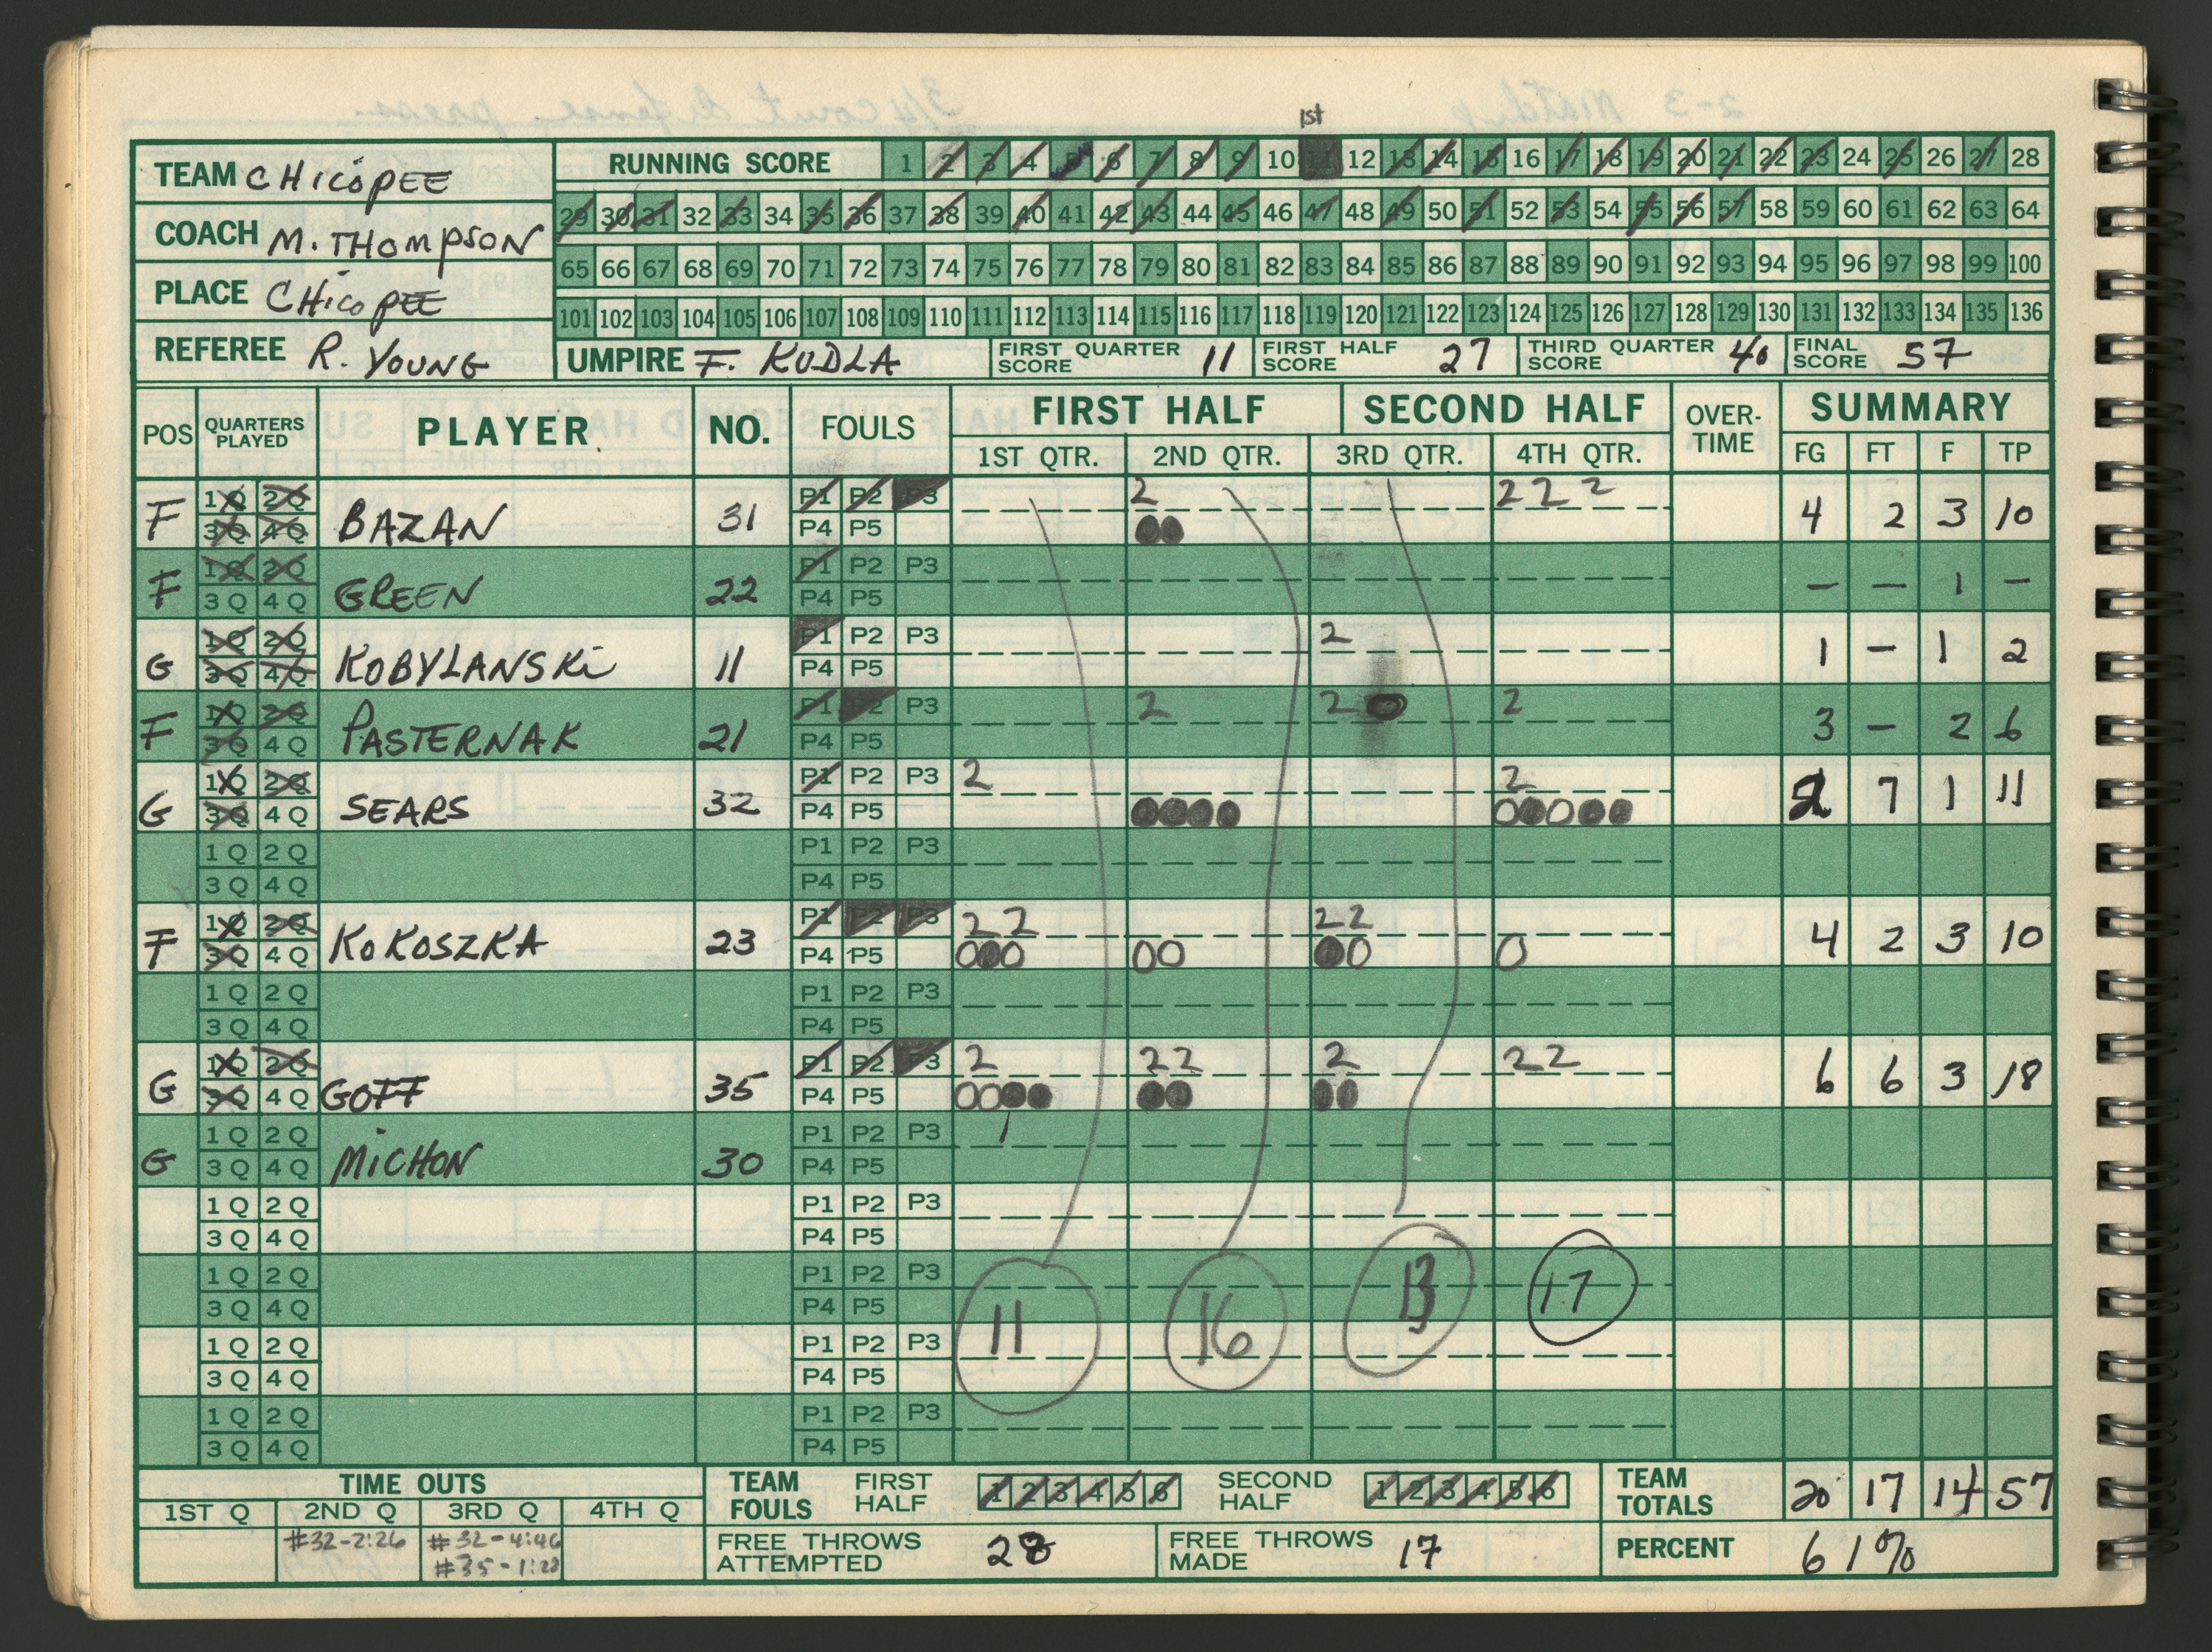 1st
TEAM CHICOPEE
COACH M. THOMPSON
PLACE CHICOPEE
REFEREE R. YOUNG
RUNNING SCORE 1 2 3 4 5 6 7 8 9 10 11 12 13 14 15 16 17 18 19 20 21 22 23 24 25 26 27 28
29 30 31 32 33 34 35 36 37 38 39 40 41 42 43 44 45 46 47 48 49 50 51 52 53 54 55 56 57 58 59 60 61 62 63 64
65 66 67 68 69 70 71 72 73 74 75 76 77 78 79 80 81 82 83 84 85 86 87 88 89 90 91 92 93 94 95 96 97 98 99 100
101 102 103 104 105 106 107 108 109 110 111 112 113 114 115 116 117 118 119 120 121 122 123 124 125 126 127 128 129 130 131 132 133 134 135 136
UMPIRE F. KUDLA FIRST QUARTER SCORE 11 FIRST HALF SCORE 27 THIRD QUARTER SCORE 40 FINAL SCORE 57
POS QUARTERS PLAYED PLAYER NO. FOULS FIRST HALF SECOND HALF OVER-TIME SUMMARY
1ST QTR. 2ND QTR. 3RD QTR. 4TH QTR. FG FT F TP
F 1Q 2Q BAZAN 31 P1 P2 P3 2 2 2 2 4 2 3 10
3Q 4Q P4 P5
F 1Q 2Q GREEN 22 P1 P2 P3 – – 1 –
3Q 4Q P4 P5
G 1Q 2Q KOBYLANSKi 11 P1 P2 P3 2 1 – 1 2
3Q 4Q P4 P5
F 1Q 2Q PASTERNAK 21 P1 P2 P3 2 2 0 2 3 – 2 6
3Q 4Q P4 P5
G 1Q 2Q SEARS 32 P1 P2 P3 2 2 2 7 1 11
3Q 4Q P4 P5 0000 00000
1Q 2Q P1 P2 P3
3Q 4Q P4 P5
F 1Q 2Q KOKOSZKA 23 P1 P2 P3 2 2 2 2 4 2 3 10
3Q 4Q P4 P5 000 00 00 0
1Q 2Q P1 P2 P3
3Q 4Q P4 P5
G 1Q 2Q GOFF 35 P1 P2 P3 2 2 2 2 2 2 6 6 3 18
3Q 4Q P4 P5 0000 00 00
G 1Q 2Q MICHON 30 P1 P2 P3
3Q 4Q P4 P5
1Q 2Q P1 P2 P3
3Q 4Q P4 P5
1Q 2Q P1 P2 P3
3Q 4Q P4 P5
11 16 13 17
1Q 2Q P1 P2 P3
3Q 4Q P4 P5
1Q 2Q P1 P2 P3
3Q 4Q P4 P5
TIME OUTS
1ST Q 2ND Q 3RD Q 4TH Q
#32-2:26 #32-4:46
#35-1:20
TEAM FOULS FIRST HALF 1 2 3 4 5 6 SECOND HALF 1 2 3 4 5 6
TEAM TOTALS 20 17 14 57
FREE THROWS ATTEMPTED 28 FREE THROWS MADE 17
PERCENT 61%